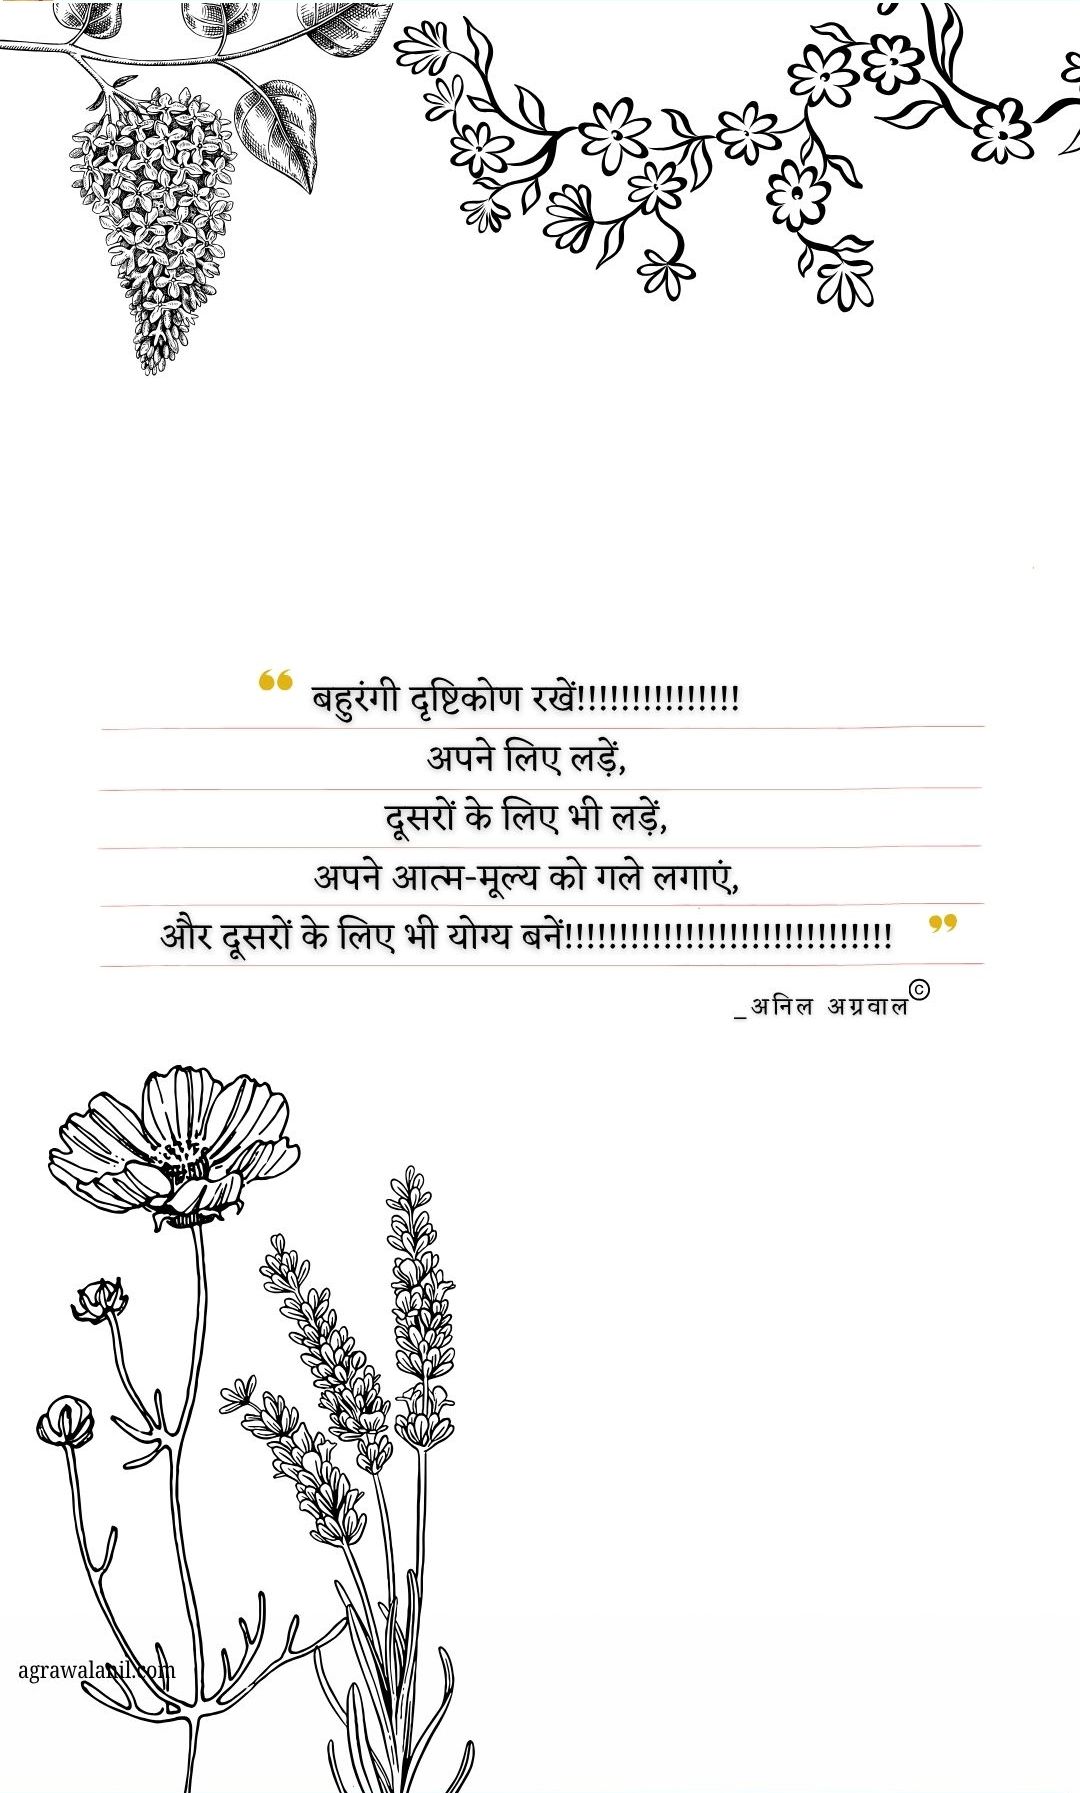 “ बहुरंगी दृष्टिकोण रखें!!!!!!!!!!!!!!!
अपने लिए लड़ें,
दूसरों के लिए भी लड़ें,
अपने आत्म-मूल्य को गले लगाएं,
और दूसरों के लिए भी योग्य बनें!!!!!!!!!!!!!!!!!!!!!!!!!!!!!! ”
_अनिल अग्रवाल©
agrawalanil.com